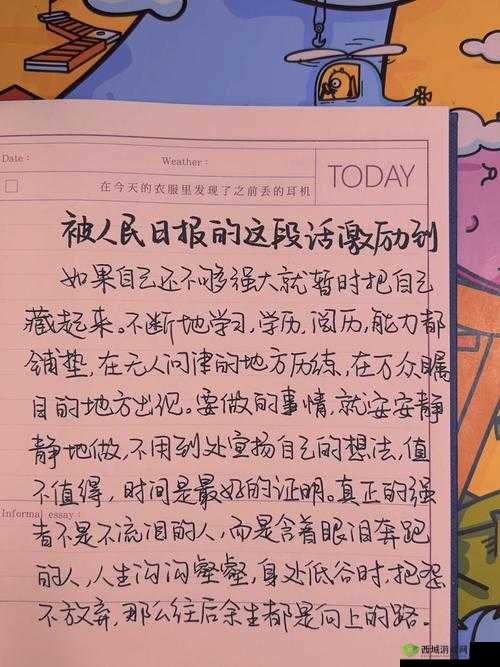 Date:
Weather:
TODAY
在今天的衣服里发现了之前丢的耳机
被人民日报的这段话激励到
如果自己还不够强大就暂时把自己
藏起来。不断地学习,学历,阅历,能力都
铺垫,在无人问津的地方历练,在万众瞩
目的地方出现。要做的事情,就安安静
静地做,不用到处宣扬自己的想法,值
不值得,时间是最好的证明。真正的强
Informal essay:
者不是不流泪的人,而是含着眼泪奔跑
的人,人生沟沟壑壑,身处低谷时,把怨
不放弃,那么往后余生都是向上的路。
西城游戏网